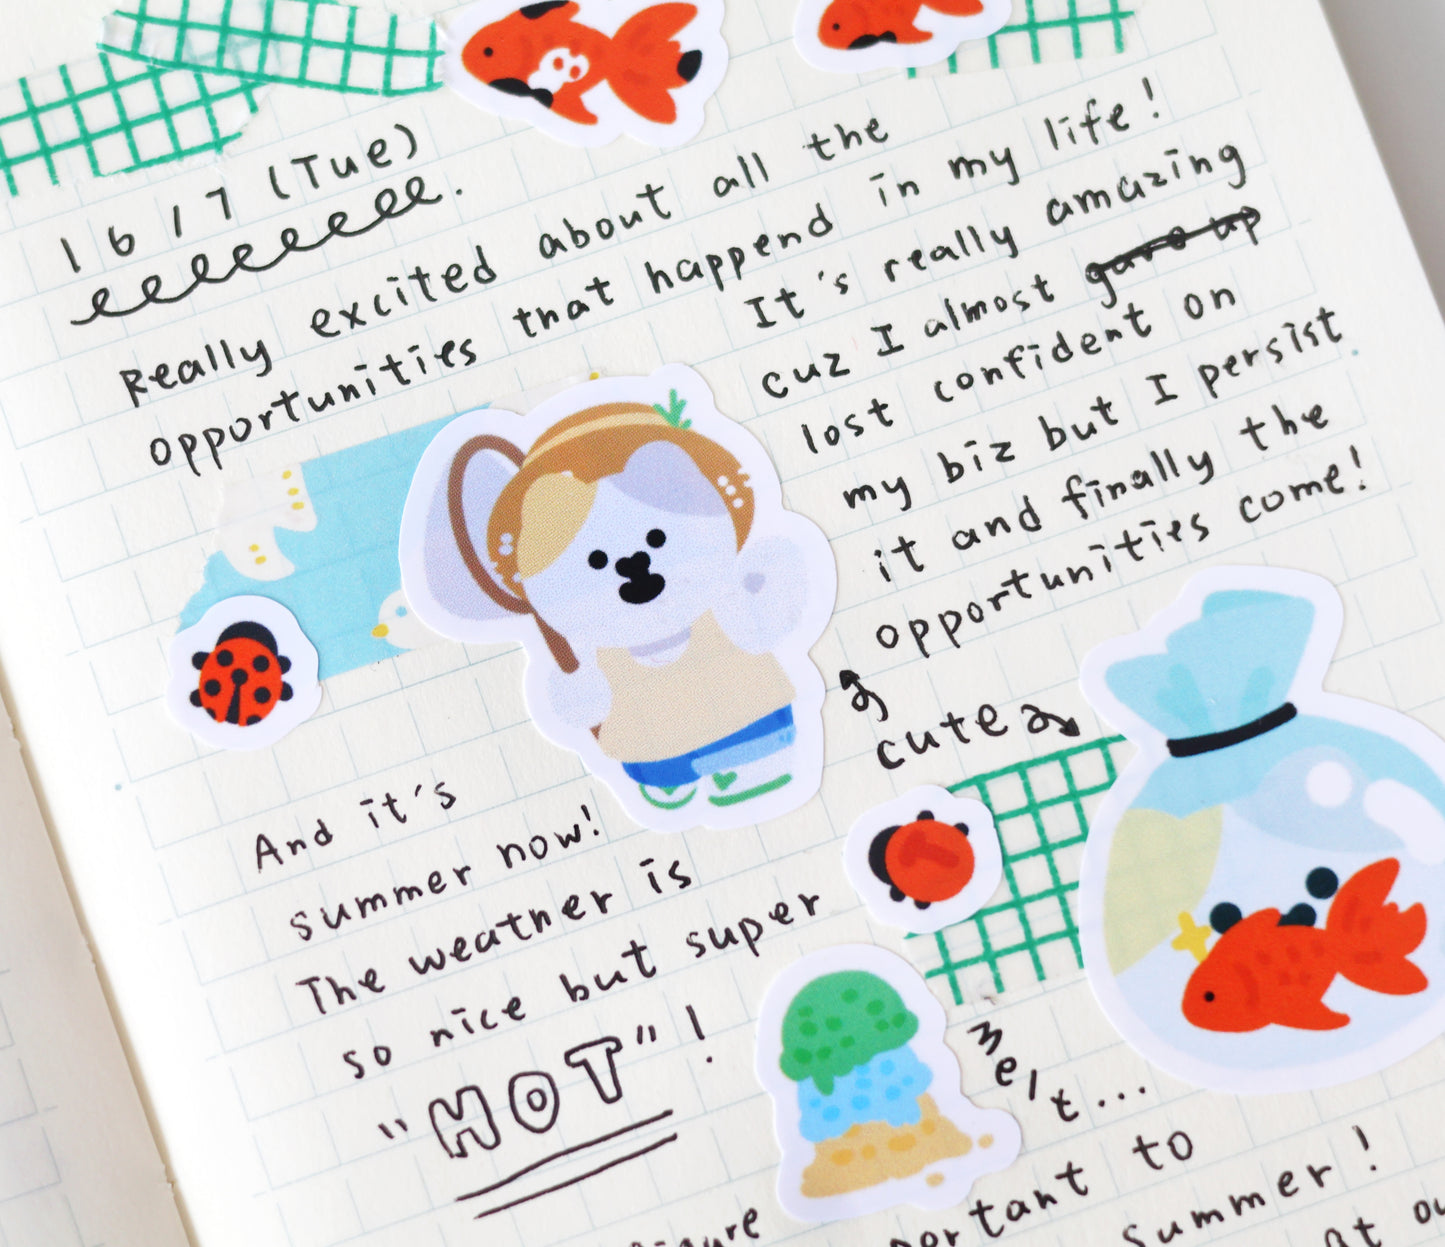 16/7 (Tue)
Really excited about all the
opportunities that happend in my life!
It's really amazing
cuz I almost gave up
lost confident on
my biz but I persist
it and finally the
opportunities come!
cute
And it's
summer now!
The weather is
so nice but super
"HOT"!
melt...
to
summer!
at